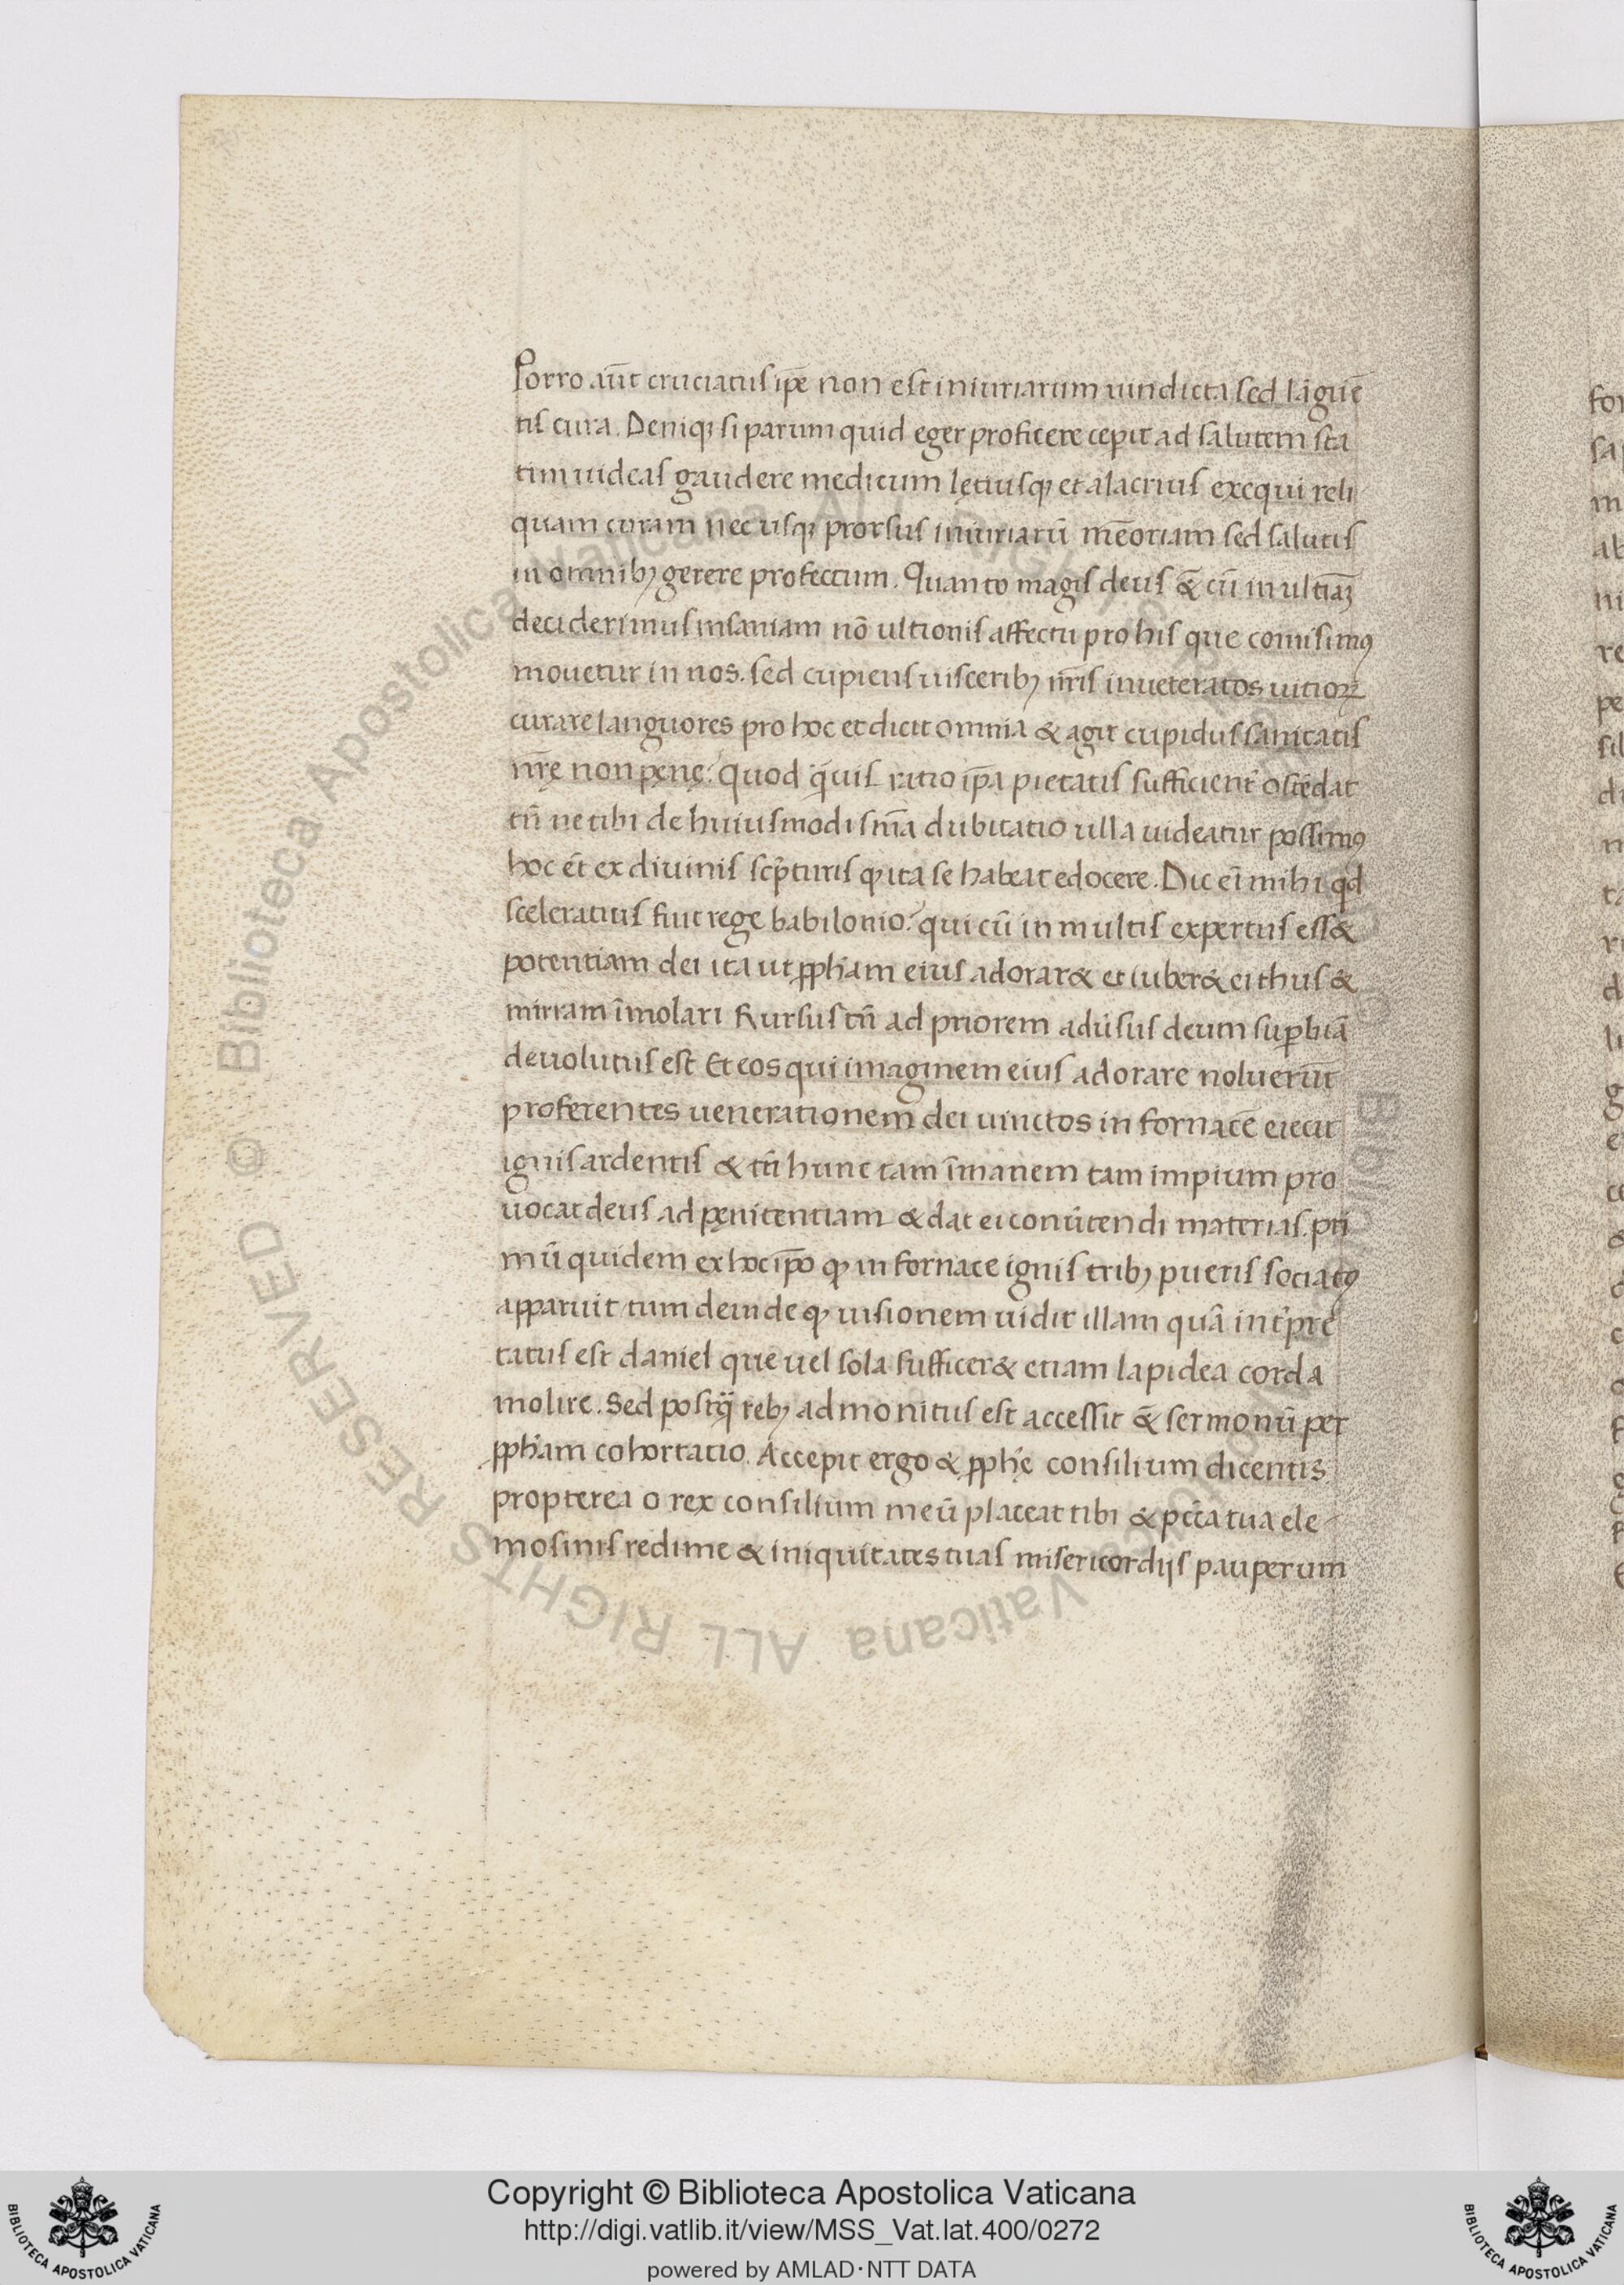 Porro aūt cruciatus ip̄e non est iniuriarum uindicta sed lāguē
tis cura. Deniqꝫ si parum quid eger proficere cepit ad salutem sta
tim uideas gaudere medicum lętiusqꝫ et alacrius exequi reli
quam curam nec usqꝫ prorsus iniuriarū mēoriam sed salutis
in omnibꝫ gerere profectum. Quanto magis deus &̄ cū in ultimaꝫ
deciderimus insaniam nō ultionis affectu pro his que comisimꝰ
mouetur in nos. sed cupiens uisceribꝫ nr̄is inueteratos uitioꝝ
curare languores pro hoc et dicit omnia & agit cupidus sanitatis
nr̄ę non pęnę: quod q̄uis ratio ip̄a pietatis sufficient̄ ostēdat
tn̄ ne tibi de huiusmodi sn̄ia dubitatio ulla uideatur possimꝰ
hoc et̄ ex diuinis scp̄turis ꝙ ita se habeat edocere. Dic eī mihi qd̄
sceleratius fuit rege babilonio? qui cū in multis expertus ess&
potentiam dei ita ut ꝓph̄am eius adorar& et iuber& ei thus &
mirram īmolari Rursus tn̄ ad priorem adūsus deum suꝑbiā
deuolutus est Et eos qui imaginem eius adorare noluerūt
proferentes uenerationem dei uinctos in fornacē eiecit
ignis ardentis & tn̄ hunc tam īmanem tam impium pro
uocat deus ad pęnitentiam & dat ei conūtendi materias. pri
mū quidem ex hoc ip̄o ꝙ in fornace ignis tribꝫ pueris sociatꝰ
apparuit tum deinde ꝙ uisionem uidit illam quā int̄pre
tatus est daniel que uel sola sufficer& etiam lapidea corda
molire. Sed postq̄ rebꝫ admonitus est accessit &̄ sermonū per
ꝓph̄am cohortatio. Accepit ergo & ꝓph̄ę consilium dicentis
propterea o rex consilium meū placeat tibi & pc̄ca tua ele
mosinis redime & iniquitates tuas misericordijs pauperum
Copyright © Biblioteca Apostolica Vaticana
http://digi.vatlib.it/view/MSS_Vat.lat.400/0272
powered by AMLAD·NTT DATA